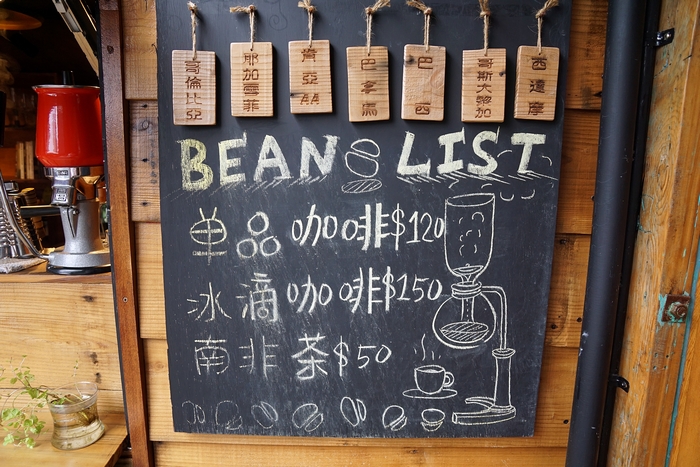 哥倫比亞
耶加雪菲
肯亞AA
巴拿馬
巴西
哥斯大黎加
西達摩
BEAN LIST
單品咖啡$120
冰滴咖啡$150
南非茶$50